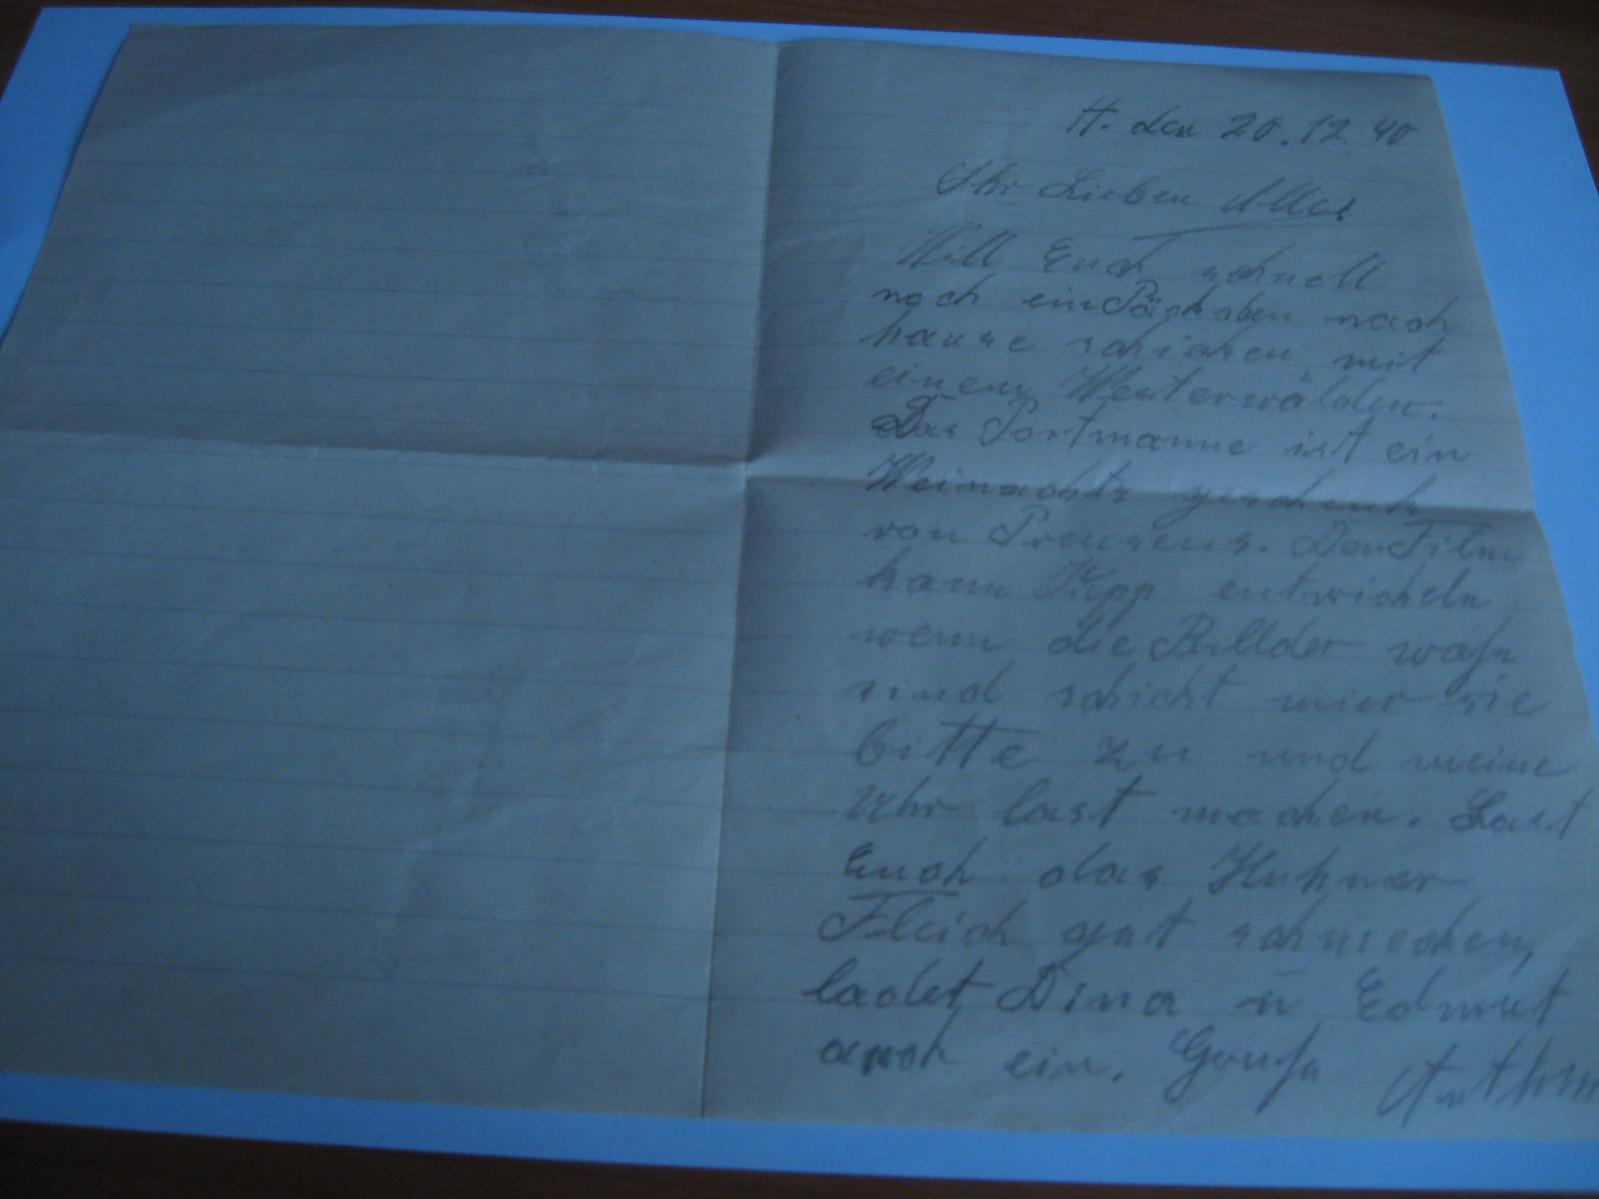 H. den 20.12.40
Ihr Lieben Alle
Will Euch schnell
noch ein Päckchen nach
hause schicken mit
einem Westerwälder.
Das Portmanne ist ein
Weinachts geschenk
von Preusens. Den Film
kann Kipp entwickeln
wenn die Billder was
sind schickt mier sie
bitte zu und meine
Uhr last machen. Last
Euch das Huhner
Fleich gut schmecken,
ladet Dina u Edmut
auch ein. Gruß Arthur